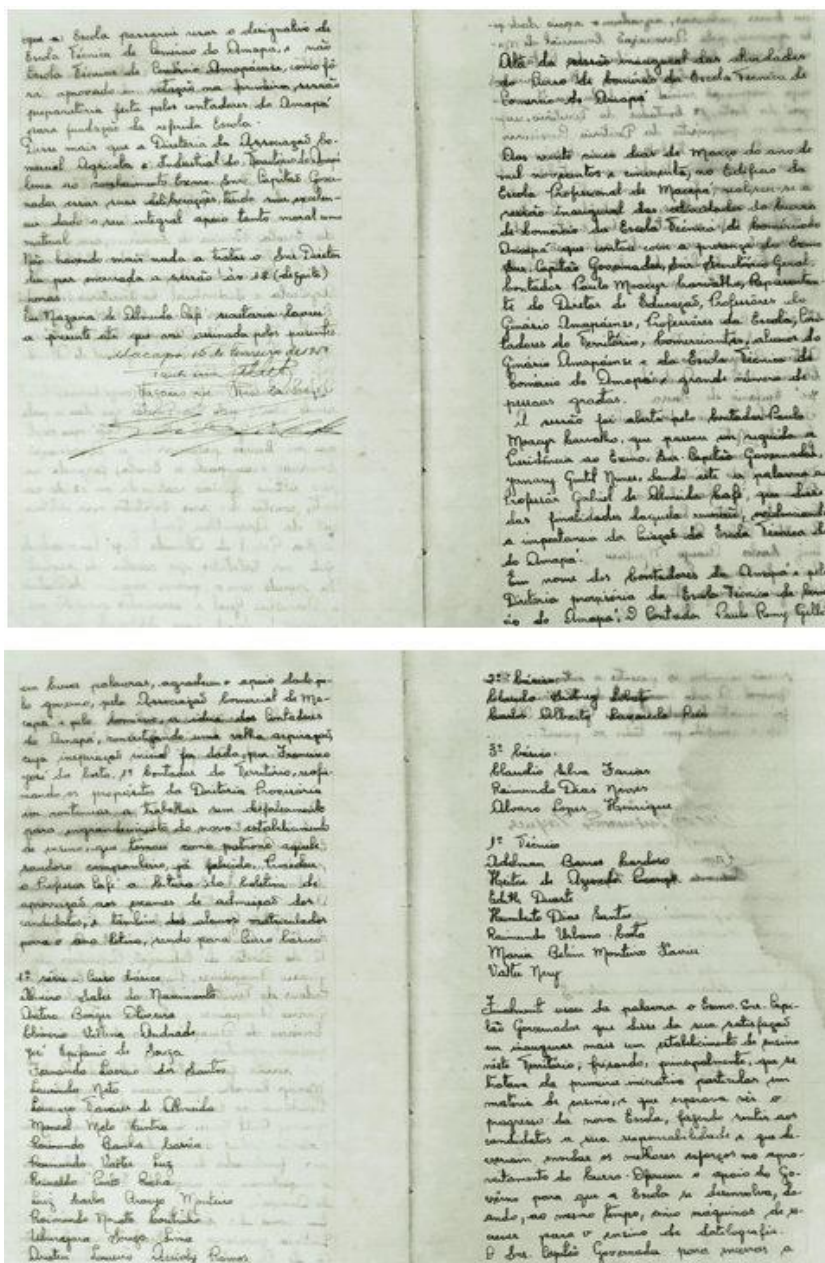 que a Escola passaria usar o designativo de
Escola Técnica de Comércio do Amapá, e não
Escola Técnica de Comércio Amapáense, como fô
ra aprovado em votação na primeira sessão
preparatória feita pelos contadores do Amapá
para fundação da referida Escola.
Disse mais que a Diretoria da Associação Co-
mercial Agricola e Industrial do Território do Amapá
levou ao conhecimento Exmo. Snr. Capitão Gover-
nador essas suas deliberações, tendo sua excelen-
cia dado o seu integral apoio tanto moral como
material.
Não havendo mais nada a tratar o Snr. Diretor
deu por encerrada a sessão às 18 (dezoito)
horas.
Eu Mazana de Almeida Café secretaria lavrei
a presente ata que vai assinada pelos presentes
Macapá, 15 de fevereiro de 1950
Ata da sessão inaugural das atividades
do Curso de Comércio da Escola Técnica de
Comércio do Amapá
Aos vinte cinco dias de Março do ano de
mil novecentos e cincoenta, no Edificio da
Escola Profissional de Macapá, realizou-se a
sessão inaugural das atividades do Curso
de Comércio da Escola Técnica de Comércio do
Amapá que contou com a presença do Exmo
Snr. Capitão Governador, Snr. Secretário Geral,
Contador Paulo Moacyr Carvalho, Representan-
te do Diretor de Educação, Professôres do
Ginásio Amapáense, Professôres da Escola, Con-
tadores do Território, Comerciantes, alunos do
Ginásio Amapáense e da Escola Técnica de
Comércio do Amapá e grande número de
pessoas gradas.
A sessão foi aberta pelo Contador Paulo
Moacyr Carvalho, que passou em seguida a
Presidência ao Exmo. Snr. Capitão Governador,
Janary Gentil Nunes, dando este a palavra ao
Professor Gabriel de Almeida Café, que disse
das finalidades daquela reunião, evidenciando
a importancia da Criação da Escola Técnica de
do Amapá.
Em nome dos Contadores do Amapá e pela
Diretoria provisória da Escola Técnica de Comér
cio do Amapá, o Contador Paulo Remy Gillet
em breves palavras, agradeceu o apoio dado pe-
lo governo, pela Associação Comercial de Ma-
capá e pelo Comércio, a ideia dos Contadores
do Amapá, concretizando uma velha aspiração
cuja inspiração inicial foi dada por Francisco
José da Costa, 1º Contador do Território, reafir-
mando os propósitos da Diretoria Provisória
em continuar a trabalhar sem desfalecimento
para engrandecimento do novo estabelecimento
de ensino que tomou como patrono aquele
saudoso companheiro, já falecido. Procedeu
o Professor Café a leitura do boletim de
aprovação aos exames de admissão dos
candidatos, e também dos alunos matriculados
para o ano letivo, sendo para Curso básico
1ª série - Curso básico
Sales do Nascimento
Borges Oliveira
Vilhena Andrade
José Epifanio de Souza
Fernando Lacerda dos Santos
Laurindo Neto
Lourenço Tavares de Almeida
Manoel Melo
Raimundo Banha
Raimundo Valter Luz
Reinaldo Pinto Rocha
Luiz Carlos Araujo Monteiro
Raimundo Nonato Coutinho
Ubiraçara Souza Lima
Loureiro Accioly Ramos
2º básico
Claudio Sidney Lobato
Carlos Alberto
3º básico.
Claudio Silva Farias
Raimundo Dias Neves
Alvaro Lopes Henrique
1º Técnico
Adelman Barros Cardoso
Heitor de Azevedo
Edith Duarte
Humberto Dias Santos
Raimundo Urbano Costa
Maria Belem Monteiro Xavier
Valter Nery
Finalment usou da palavra o Exmo. Snr. Capi-
tão Governador que disse da sua satisfação
em inaugurar mais um estabelecimento de ensino
nêste Território, frisando, principalmente, que se
tratava da primeira iniciativa particular em
materia de ensino, e que esperava vêr o
progresso da nova Escola, fazendo sentir aos
candidatos a sua responsabilidade e que de-
veriam envidar os melhores esforços no apro-
veitamento do Curso. Ofereceu o apoio do Go-
vêrno para que a Escola se desenvolva, do-
ando, ao mesmo tempo, cinco máquinas de es-
crever para o ensino de datilografia.
O Snr. Capitão Governador para